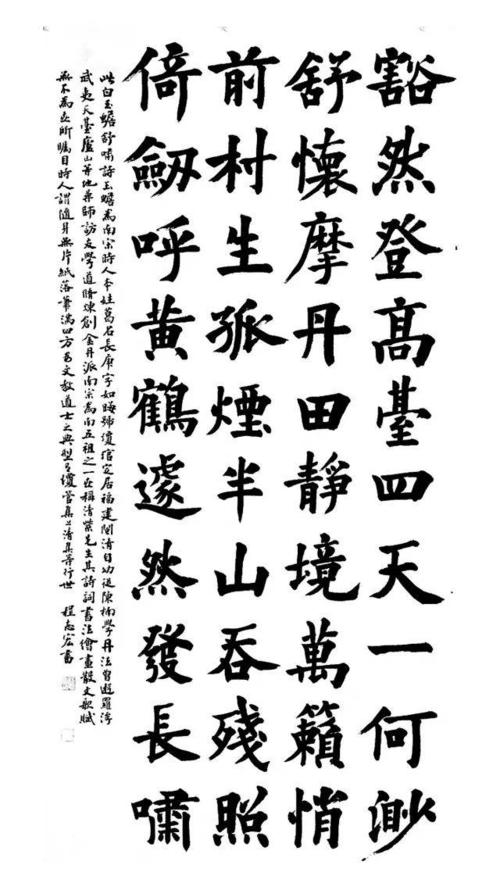 豁然登高臺四天一何渺
舒懷摩丹田靜境萬籟悄
前村生孤煙半山吞殘照
倚劒呼黃鶴遽然發長嘯
此白玉蟾舒嘯詩玉蟾為南宗時人本姓葛名長庚字如晦號瓊琯定居福建閩清自幼從陳楠學丹法曾遊羅浮
武夷天臺廬山等地尋師訪友學道修煉創金丹派南宗為南五祖之一世稱清紫先生其詩詞書法繪畫散文歌賦
無不為世所矚目時人謂隨身無片紙落筆滿四方為文教道士之典型有瓊管集上清集等行世 程志宏書